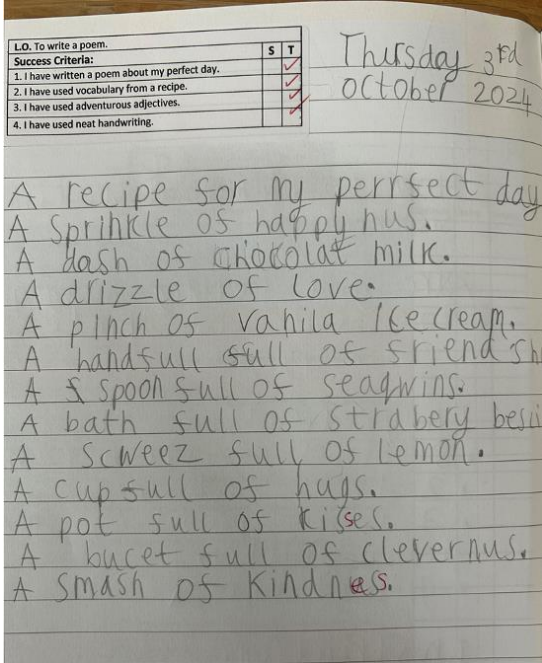 L.O. To write a poem.
Success Criteria: S T
1. I have written a poem about my perfect day.
2. I have used vocabulary from a recipe.
3. I have used adventurous adjectives.
4. I have used neat handwriting.
Thursday 3rd
October 2024
A recipe for my perrfect day
A Sprinkle of happynus.
A dash of chocolat milk.
A drizzle of love.
A pinch of vanila Ice cream.
A handfull full of friend sh
A spoon full of seaqwins.
A bath full of strabery
A scweez full of lemon.
A cup full of hugs.
A pot full of kisses.
A bucet full of clevernus.
A smash of kindness.